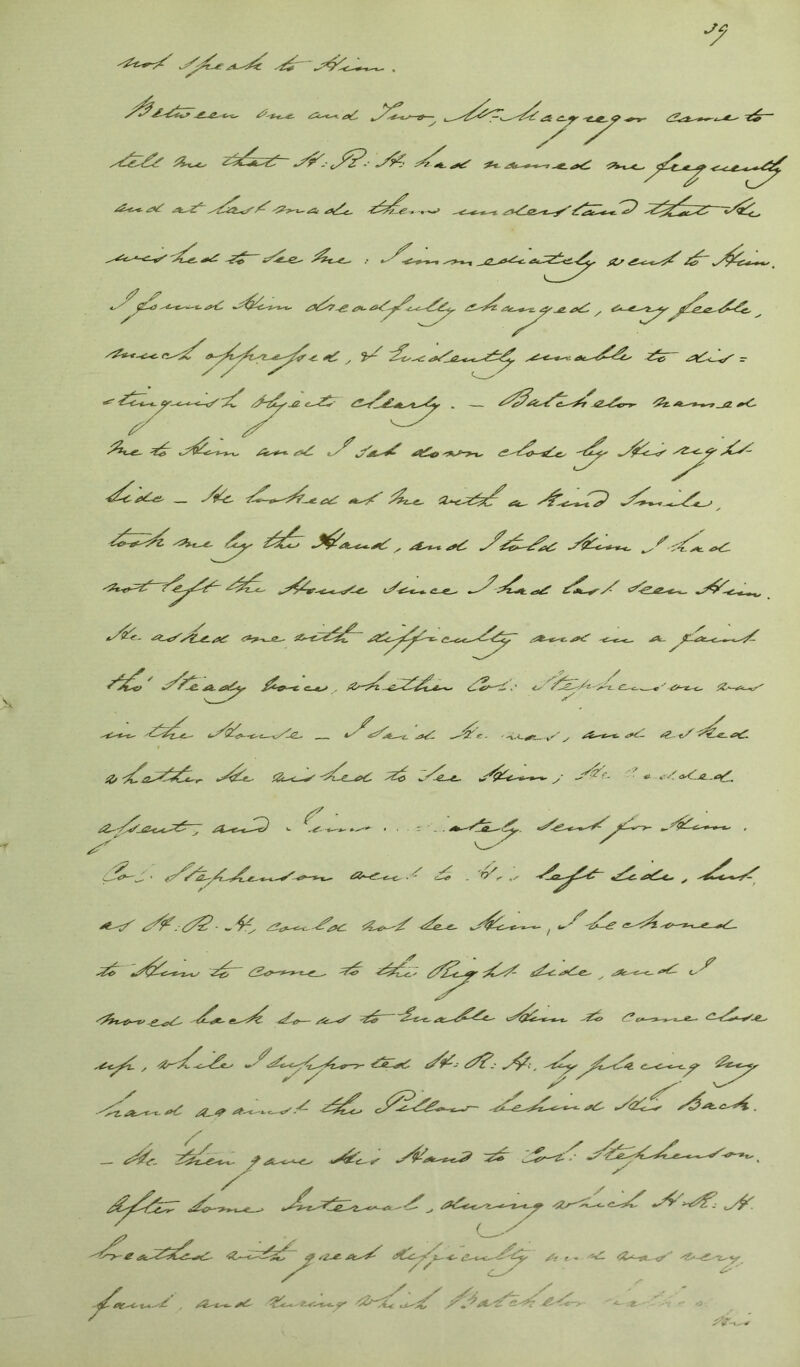 39
not speak to Him.
Between One and Two, Mr. Macgregor came to
tell me that H: R: H: had named me frequently
and at last made them understand that He
wished to see me : I immediately went to Him.
I found Him dreadfully changed, very feeble,
much oppressed, & Evidently unable to dis=
=tinguish Objects clearly. — Batchelor named
me to Him and I sat down close by His right
side — He looked at me with a kind Smile,
took me by the Hand, and I told Him I had
not left the House since I had last seen Him.
He asked me with difficulty and in a faint
tho' Steady Voice, whether Col: Stephenson was
in the House — I said He was, and asked
whether He wished to see Him; He nodded
assent, and I sent for Him.
Col: Stephenson went to His left side, but
as H: R: H, could not see Him, I beckoned
to Him to come to the Right side, and I
moved back so as to Enable Him to come close
up, while I supported H: R: H:, by placing my
hand against the Pillow behind His Back.
— He then gave His Hand to Col: Stephenson.
After some Interval, during which H: R: H.
breathed with great difficulty and was very
faint, and during which Batchelor
His